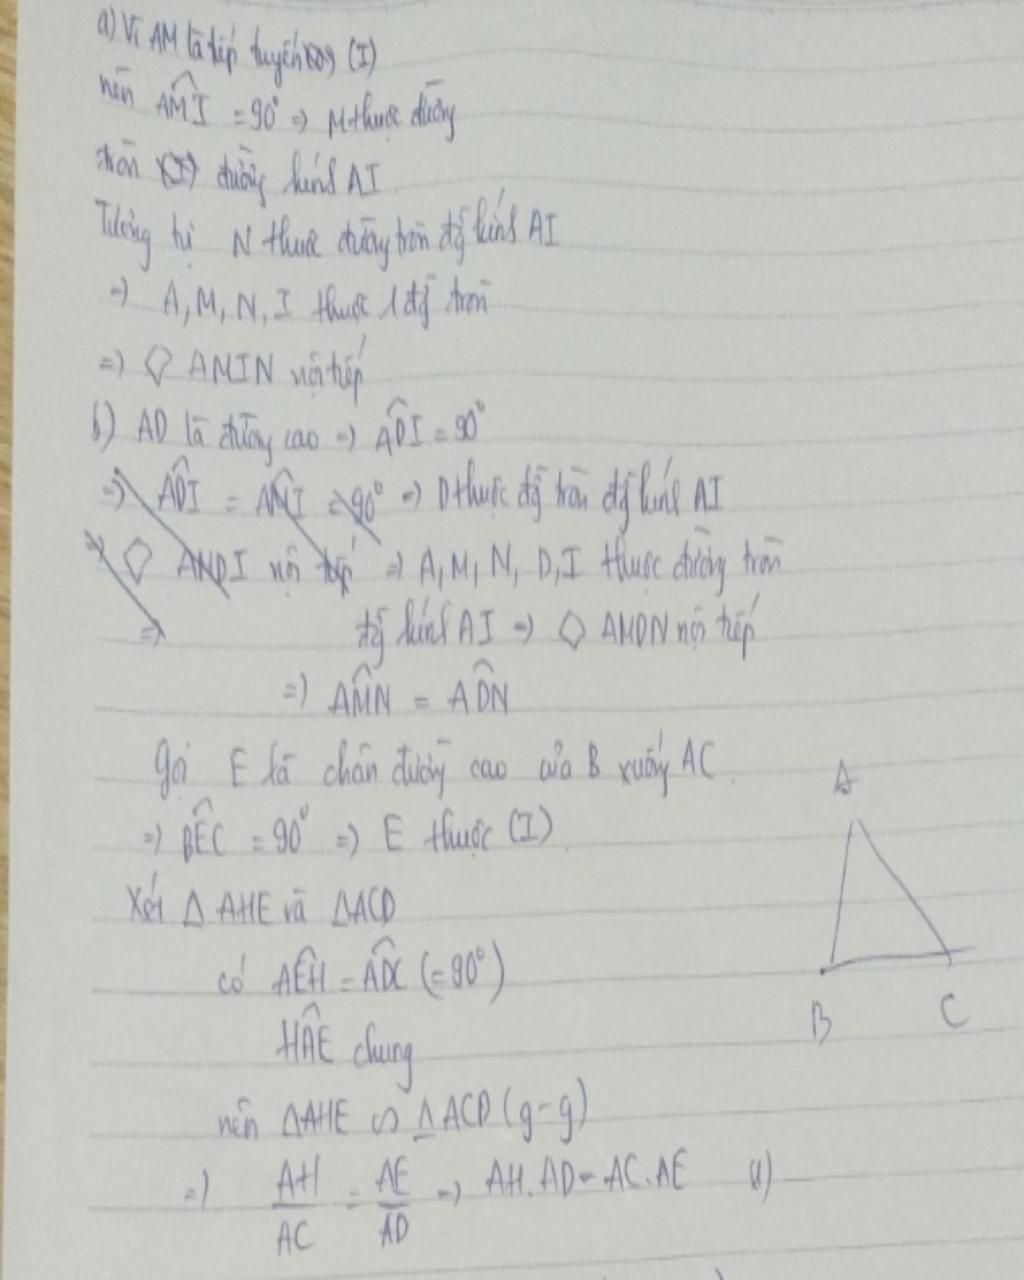 a) Vì AM là tiếp tuyến của (I)
nên AM̂I = 90° => M thuộc đường
tròn (I) đường kính AI
Tương tự N thuộc đường tròn đg kính AI
=> A, M, N, I thuộc 1 đg tròn
=> ◇ AMIN nội tiếp
b) AD là đường cao => AD̂I = 90°
=> AD̂I = AM̂I = 90° => D thuộc đg tròn đg kính AI
=> ◇ AMDI nội tiếp => A, M, N, D, I thuộc đường tròn
=> đg kính AI => ◇ AMDN nội tiếp
=> AM̂N = AD̂N
Gọi E là chân đường cao của B xuống AC
=> BÊC = 90° => E thuộc (I)
Xét △ AHE và △ACD
có AÊH = AD̂C (=90°)
HÂE chung
nên △AHE ∽ △ACD (g-g)
=> AH/AC = AE/AD => AH.AD = AC.AE (1)
A
B C